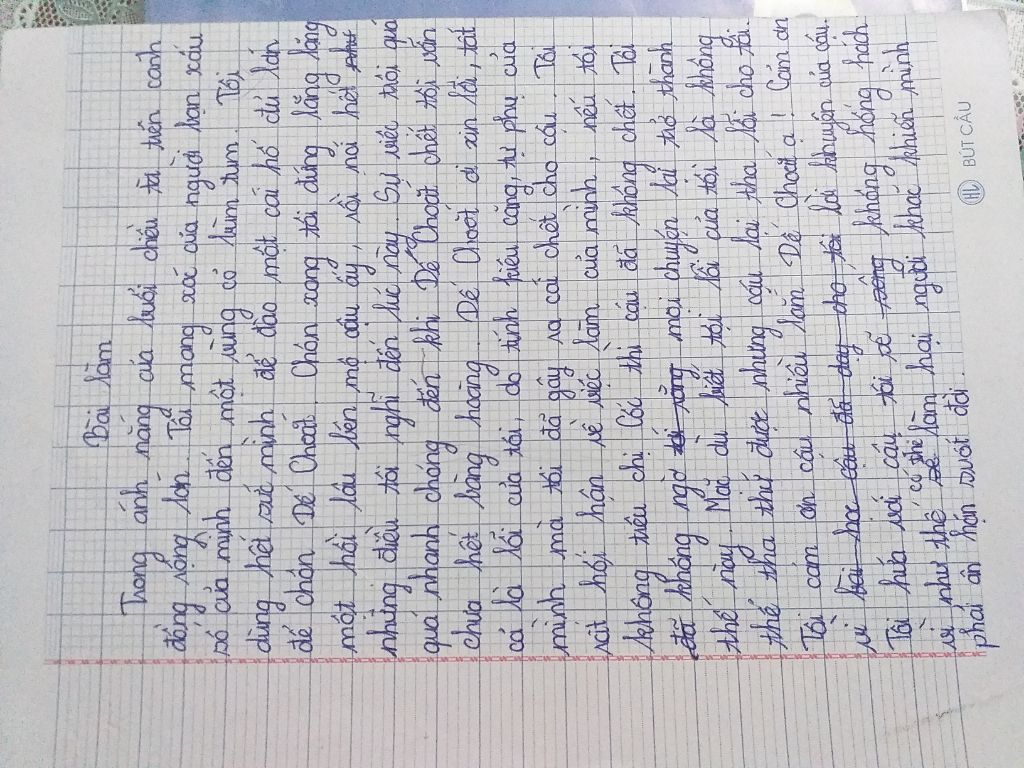 Bài làm
Trong ánh nắng của buổi chiều tà trên cánh
đồng rộng lớn. Tôi mang xác của người bạn xấu
số của mình đến một vùng cỏ lùm tum. Tôi
dùng hết sức mình để đào một cái hố đủ lớn
để chôn Dế Choắt. Chôn xong tôi đứng lặng lặng
một hồi lâu bên mộ cậu ấy, rồi nói hết
những điều tôi nghĩ đến lúc này. Sự việc trôi qua
quá nhanh chóng đến khi Dế Choắt chết tôi vẫn
chưa hết bàng hoàng. Dế Choắt ơi xin lỗi, tất
cả là lỗi của tôi, do tính kiêu căng, tự phụ của
mình mà tôi đã gây ra cái chết cho cậu. Tôi
rất hối hận về việc làm của mình, nếu tôi
không trêu chị Cốc thì cậu đã không chết. Tôi
đã không ngờ tôi rằng mọi chuyện lại trở thành
thế này. Mặc dù biết tội lỗi của tôi là không
thể tha thứ được nhưng cậu lại tha lỗi cho tôi.
Tôi cảm ơn cậu nhiều lắm Dế Choắt ạ! Cảm ơn
vì bài học cậu đã dạy cho tôi lời khuyên của cậu.
Tôi hứa với cậu tôi sẽ rằng không hống hách
vì như thế sẽ có thể làm hại người khác khiến mình
phải ân hận suốt đời.
HL BÚT CÂU